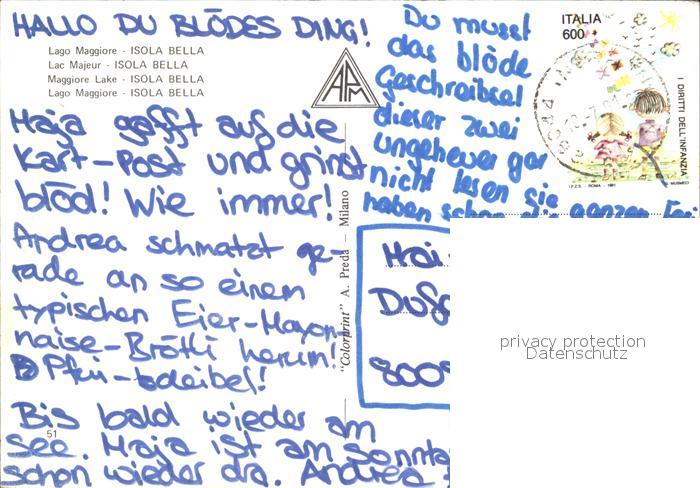 HALLO DU BLÖDES DING!
Lago Maggiore - ISOLA BELLA
Lac Majeur - ISOLA BELLA
Maggiore Lake - ISOLA BELLA
Lago Maggiore - ISOLA BELLA
APM
Maja gafft auf die
Kart-Post und grinst
blöd! Wie immer!
Andrea schmatzt ge-
rade an so einem
typischen Eier-Mayon-
naise-Brötli herum!
Pfui-bleibel!
Bis bald wieder am
See. Maja ist am Sonnta
schon wieder dra. Andrea
51
"Colorprint" A. Preda - Milano
Du musst
das blöde
Geschreibsel
dieser zwei
ungeheuer gar
nicht lesen sie
haben schon die ganzen
ITALIA
600
I DIRITTI DELL'INFANZIA
I.P.Z.S. - ROMA - 1991
Mai
Dufo
8005
privacy protection
Datenschutz